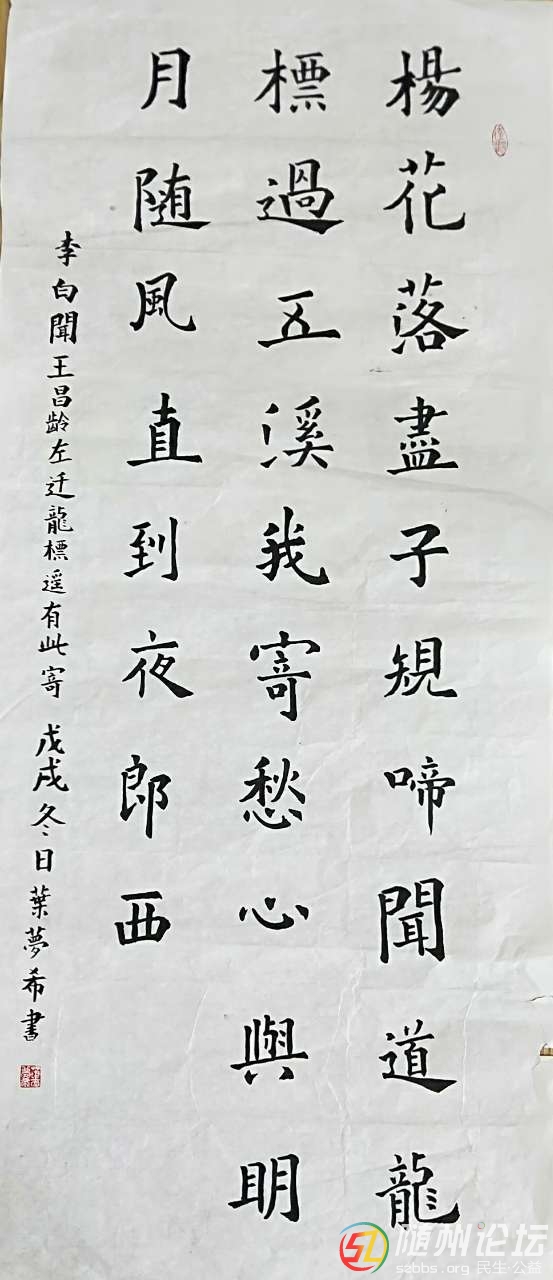 楊花落盡子規啼聞道龍
標過五溪我寄愁心與明
月随風直到夜郎西
李白聞王昌齡左迁龍標遥有此寄 戊戌冬日葉夢希書
随州论坛
szbbs.org 民生·公益